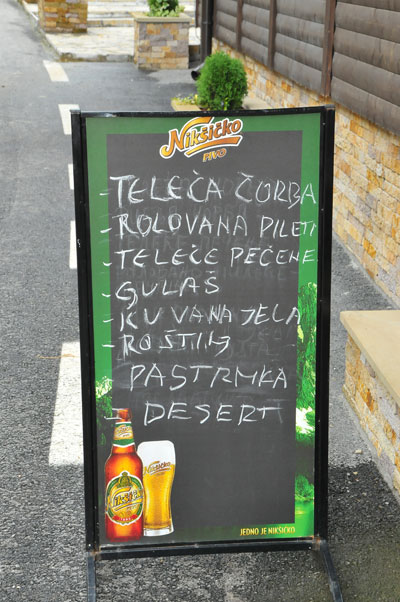 Nikšićko
PIVO
- TELEĆA ČORBA
- ROLOVANA PILETI
- TELEĆE PEČENE.
- GULAŠ
- KUVANA JELA
- ROŠTILJ
PASTRMKA
- DESERTI
Nikšićko
Nikšićko
JEDNO JE NIKŠIĆKO